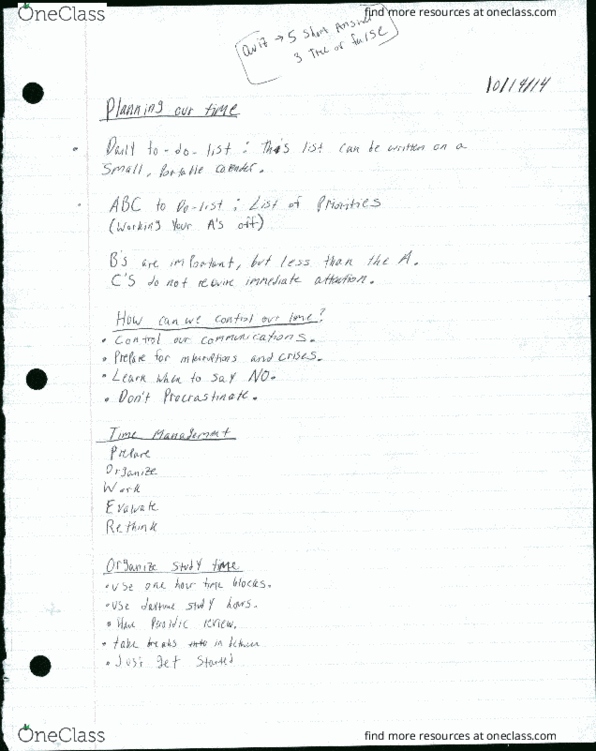 OneClass
find more resources at oneclass.com
Quiz → 5 Short Answer
3 True or False
10/14/14
Planning our time
Daily to-do-list : This list can be written on a
Small, Portable calender.
ABC to Do-list : List of Priorities
(Working Your A's off)
B's are important, but less than the A.
C's do not require immediate attention.
How can we control our time?
• Control our communications.
• Prepare for interruptions and crises.
• Learn when to say NO.
• Don't Procrastinate.
Time Management
Prepare
Organize
Work
Evaluate
Rethink
Organize study time
• use one hour time blocks.
• use daytime study hours.
• Have Periodic review.
• take breaks in between
• Just get Started
OneClass
find more resources at oneclass.com